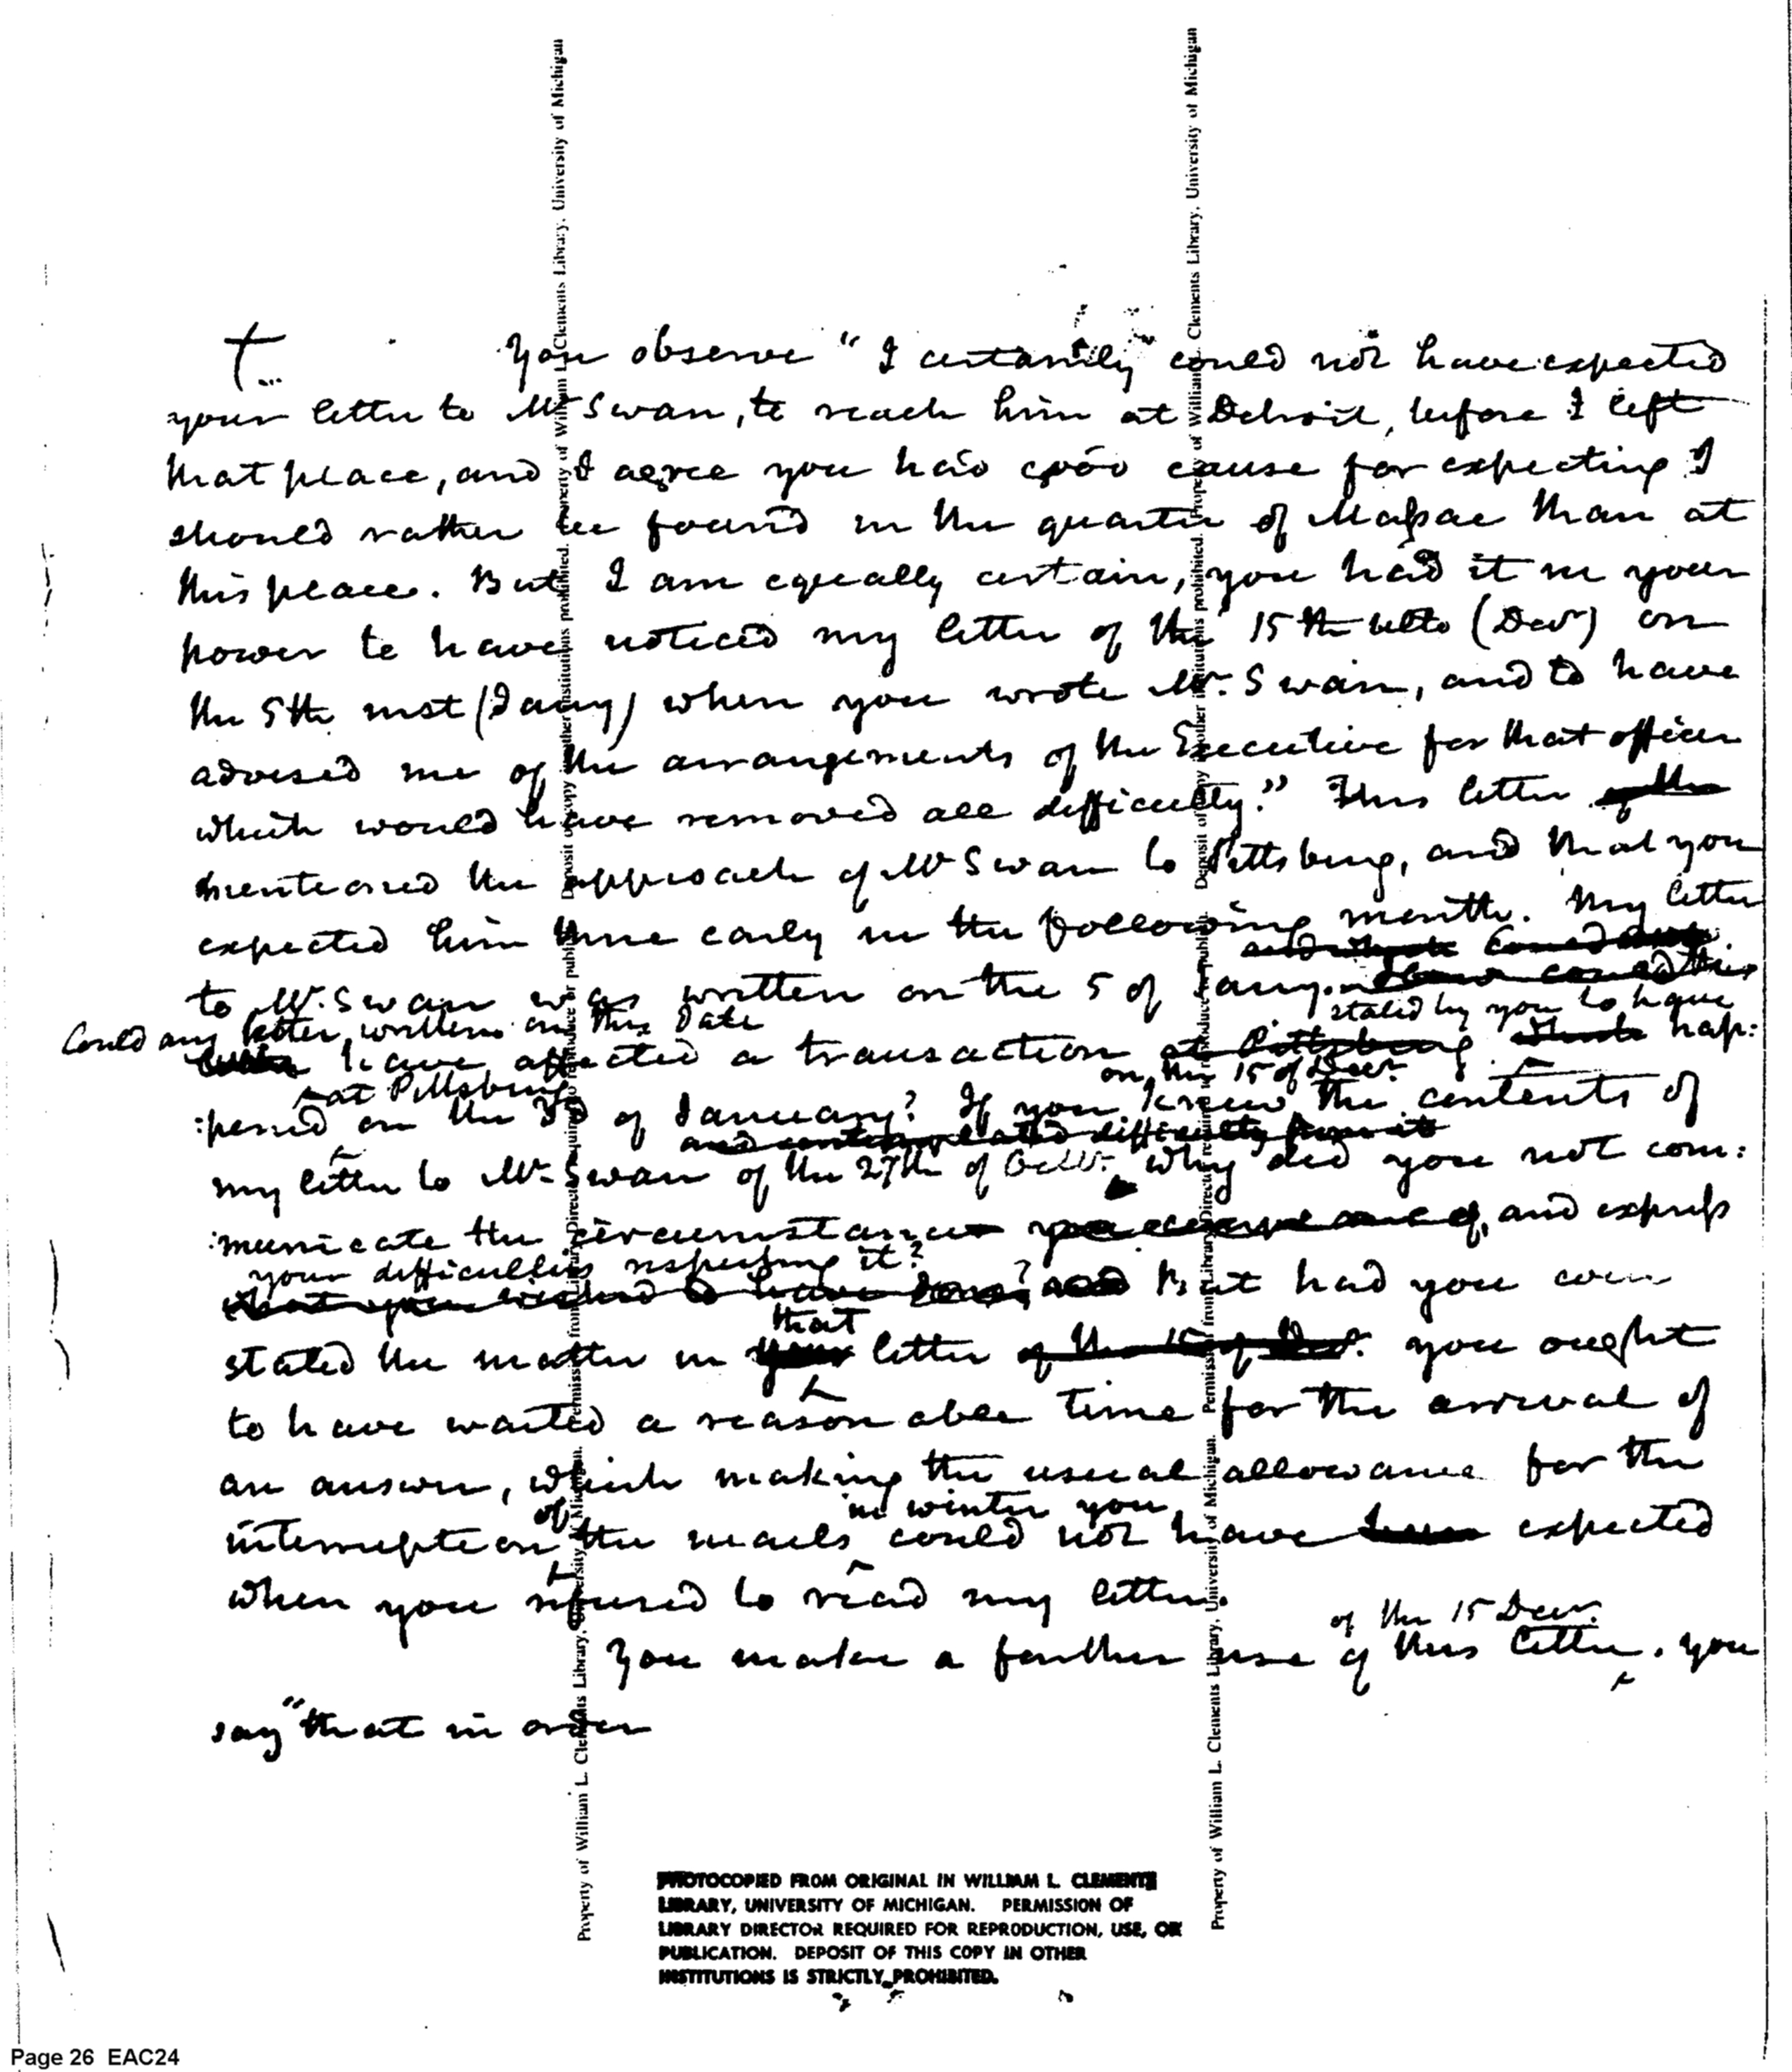 †... You observe "I certainly could not have expected
your letter to Mr Swan, to reach him at Detroit, before I left
that place, and I agree you had good cause for expecting I
should rather be found in the quarter of Massac than at
this place. But I am equally certain, you had it in your
power to have noticed my letter of the 15th ulto (Decr) on
the 5th inst (Jany) when you wrote Mr. Swan, and to have
advised me of the arrangements of the Executive for that officer
which would have removed all difficulty." This letter of the
mentioned the approach of Mr Swan to Pittsburg, and that you
expected him there early in the following month. My letter
to Mr. Swan was written on the 5 of Jany.
stated by you to have
Could any letter written on this date
have affected a transaction at Pittsburg which hap:
at Pittsburg
on the 15 of Decr.
:pened on the 3d of January? If you knew the contents of
and contemplated difficulty from it
my letter to Mr. Swan of the 27th of Octr. why did you not com:
:municate the circumstance and express
your difficulties respecting it?
what you wished to have done? and But had you even
that
stated the matter in your letter of the 15 of Decr. you ought
to have waited a reasonable time for the arrival of
an answer, which making the usual allowance for the
of in winter you
interruption the mails could not have expected
when you refused to read my letter.
of the 15 Decr.
You make a farther use of this letter. you
say "that in order
Property of William L. Clements Library, University of Michigan. Permission from Library Director required to reproduce or publish. Deposit of copy in other institutions prohibited. Property of William L. Clements Library, University of Michigan
Property of William L. Clements Library, University of Michigan. Permission from Library Director required to reproduce or publish. Deposit of copy in other institutions prohibited. Property of William L. Clements Library, University of Michigan
PHOTOCOPIED FROM ORIGINAL IN WILLIAM L. CLEMENTS
LIBRARY, UNIVERSITY OF MICHIGAN. PERMISSION OF
LIBRARY DIRECTOR REQUIRED FOR REPRODUCTION, USE, OR
PUBLICATION. DEPOSIT OF THIS COPY IN OTHER
INSTITUTIONS IS STRICTLY PROHIBITED.
Page 26 EAC24